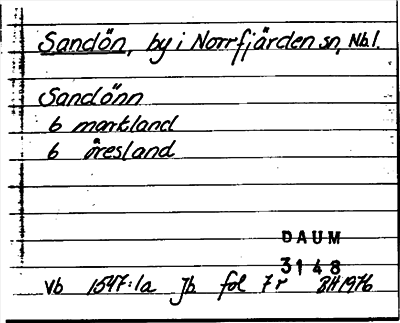 Sandön, by i Norrfjärden sn, Nb.l.
Sandönn
6 markland
6 öresland
DAUM
3148
Vb 1547:1a Jb fol 7r BH 1976